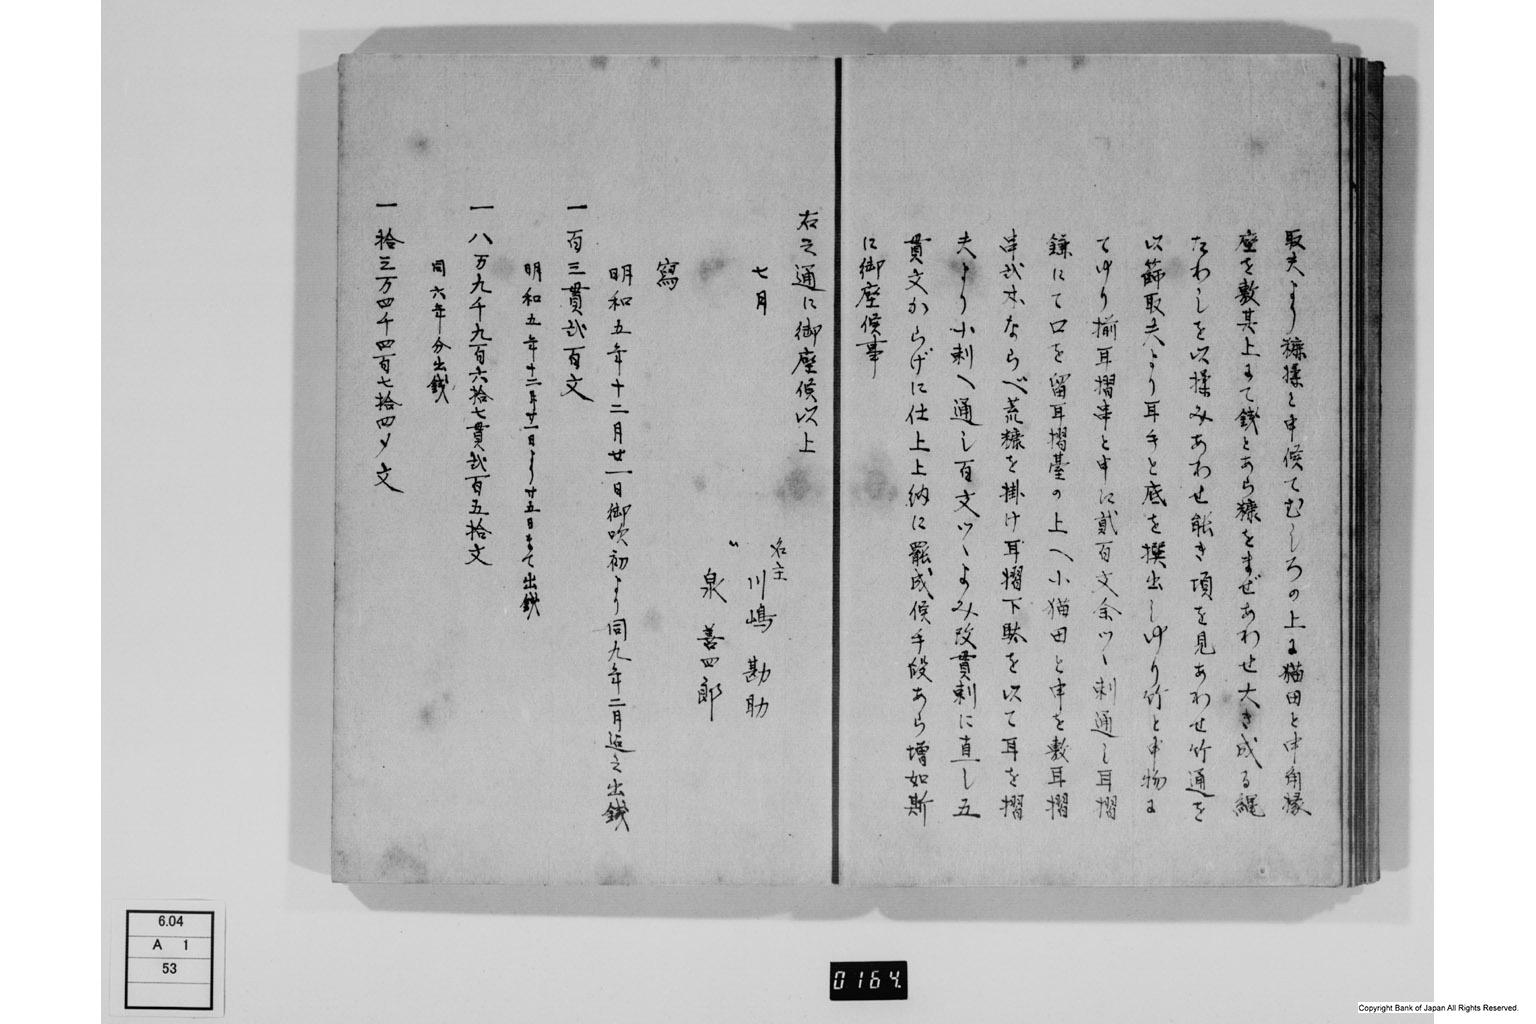 取夫より糠揉と申候てむしろの上に猫田と申角縁
座を敷其上にて銭とあら糠をまぜあわせ大き成る縄
たわしを以揉みあわせ能き頃を見あわせ竹通を
以篩取夫より耳手と底を撰出しゆり竹と申物に
てゆり揃耳摺串と申に貳百文余ツヽ刺通し耳摺
鎌にて口を留耳摺臺の上へ小猫田と申を敷耳摺
串弐本ならべ荒糠を掛け耳摺下駄を以て耳を摺
夫より小刺へ通し百文ツヽよみ改貫刺に直し五
貫文からげに仕上上納に罷成候手段あら増如斯
に御座候事
右之通に御座候以上
七月
名主
川嶋勘助
〃
泉善四郎
寫
明和五年十二月廿一日御吹初より同九年二月迄之出銭
一百三貫弐百文
明和五年十二月廿一日より廿五日まて出銭
一八万九千九百六拾七貫弐百五拾文
同六年分出銭
一拾三万四千四百七拾四〆文
6.04
A 1
53
0164.
Copyright Bank of Japan All Rights Reserved.